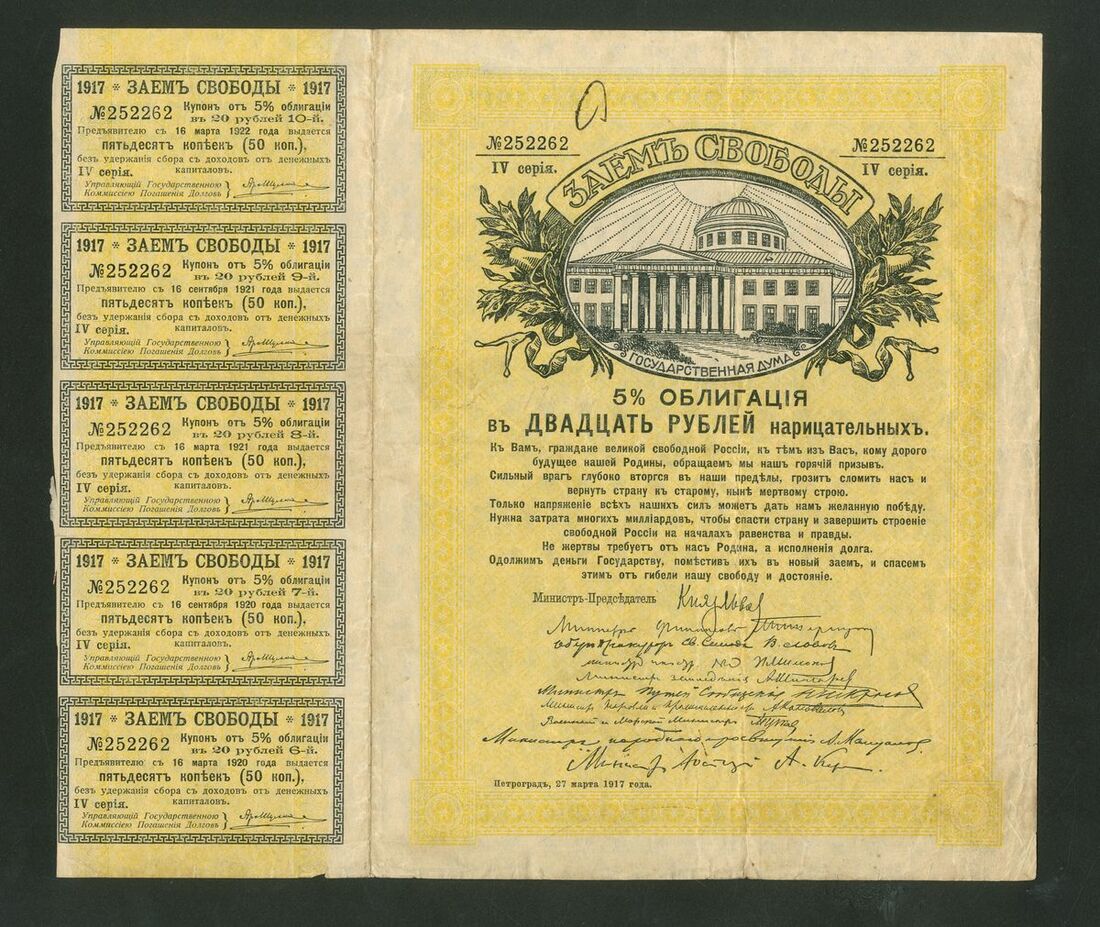 1917 * ЗАЕМЪ СВОБОДЫ * 1917
№252262 Купонъ отъ 5% облигаціи
въ 20 рублей 10-й.
Предъявителю съ 16 марта 1922 года выдается
пятьдесятъ копѣекъ (50 коп.),
безъ удержанія сбора съ доходовъ отъ денежныхъ
IV серія. капиталовъ.
Управляющій Государственною
Коммиссіею Погашенія Долговъ
1917 * ЗАЕМЪ СВОБОДЫ * 1917
№252262 Купонъ отъ 5% облигаціи
въ 20 рублей 9-й.
Предъявителю съ 16 сентября 1921 года выдается
пятьдесятъ копѣекъ (50 коп.),
безъ удержанія сбора съ доходовъ отъ денежныхъ
IV серія. капиталовъ.
Управляющій Государственною
Коммиссіею Погашенія Долговъ
1917 * ЗАЕМЪ СВОБОДЫ * 1917
№252262 Купонъ отъ 5% облигаціи
въ 20 рублей 8-й.
Предъявителю съ 16 марта 1921 года выдается
пятьдесятъ копѣекъ (50 коп.),
безъ удержанія сбора съ доходовъ отъ денежныхъ
IV серія. капиталовъ.
Управляющій Государственною
Коммиссіею Погашенія Долговъ
1917 * ЗАЕМЪ СВОБОДЫ * 1917
№252262 Купонъ отъ 5% облигаціи
въ 20 рублей 7-й.
Предъявителю съ 16 сентября 1920 года выдается
пятьдесятъ копѣекъ (50 коп.),
безъ удержанія сбора съ доходовъ отъ денежныхъ
IV серія. капиталовъ.
Управляющій Государственною
Коммиссіею Погашенія Долговъ
1917 * ЗАЕМЪ СВОБОДЫ * 1917
№252262 Купонъ отъ 5% облигаціи
въ 20 рублей 6-й.
Предъявителю съ 16 марта 1920 года выдается
пятьдесятъ копѣекъ (50 коп.),
безъ удержанія сбора съ доходовъ отъ денежныхъ
IV серія. капиталовъ.
Управляющій Государственною
Коммиссіею Погашенія Долговъ
№252262 №252262
IV серія. IV серія.
ЗАЕМЪ СВОБОДЫ
ГОСУДАРСТВЕННАЯ ДУМА
5% ОБЛИГАЦІЯ
въ ДВАДЦАТЬ РУБЛЕЙ нарицательныхъ.
Къ Вамъ, граждане великой свободной Россіи, къ тѣмъ изъ Васъ, кому дорого
будущее нашей Родины, обращаемъ мы нашъ горячій призывъ.
Сильный врагъ глубоко вторгся въ наши предѣлы, грозитъ сломить насъ и
вернуть страну къ старому, нынѣ мертвому строю.
Только напряженіе всѣхъ нашихъ силъ можетъ дать намъ желанную побѣду.
Нужна затрата многихъ милліардовъ, чтобы спасти страну и завершить строеніе
свободной Россіи на началахъ равенства и правды.
Не жертвы требуетъ отъ насъ Родина, а исполненія долга.
Одолжимъ деньги Государству, помѣстивъ ихъ въ новый заемъ, и спасемъ
этимъ отъ гибели нашу свободу и достояніе.
Министръ-Предсѣдатель Князь Львов
Министръ Финансовъ
Оберъ Прокуроръ Св. Синода В. Львов
Министръ Земледѣлія А. Шингарев
Министръ Путей Сообщенія Н. Некрасов
Министръ Торговли и Промышленности А. Коновалов
Военный и Морской Министръ Гучков
Министръ народнаго просвѣщенія А. Мануйлов
Министръ Юстиціи А. Кер
Петроградъ, 27 марта 1917 года.